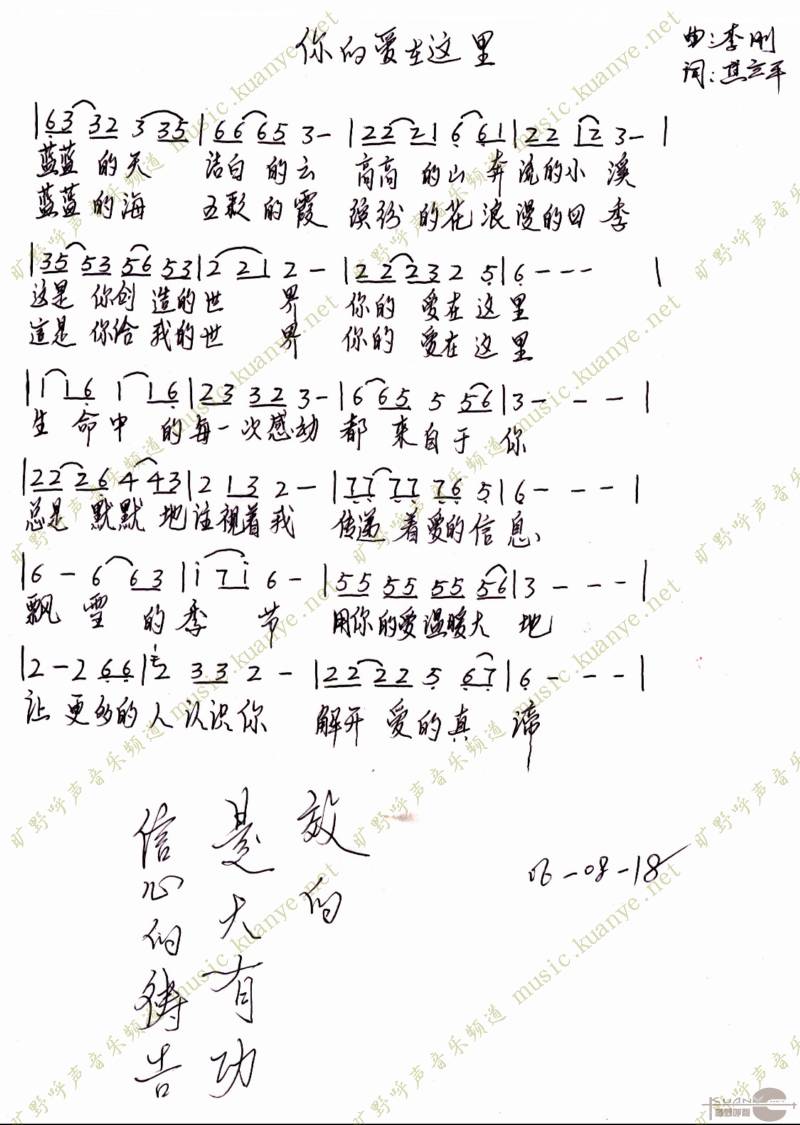 你的爱在这里
曲:李刚
词:其立平
|63 32 3 35|66 65 3-|22 21 6 61|22 12 3-|
蓝蓝 的天 洁白 的云 高高 的山 奔流的小 溪
蓝蓝的海 五彩的霞 缤纷 的花 浪漫的四 季
|35 53 56 53|2 21 2-|22 23 2 5|6---|
这是 你创 造的世 界 你的 爱在这里
這是 你给 我的世 界 你的 爱在这里
|1 16 1 16|23 32 3-|6 65 5 56|3---|
生 命中 的每一次感动 都 来自于 你
|22 26 4 43|2 13 2-|77 77 76 5|6---|
总是 默默 地注视着我 传递 着爱的信息、
|6-6 63|i 7i 6-|55 55 55 56|3---|
飘 雪 的季 节 用你的爱温暖大 地
|2-2 66|2 33 2-|22 22 5 67|6---|
让 更多的人认识你 解开 爱的真 谛
信心的祷告
是大有功
效的
06-08-18
旷野呼声音乐频道 music.kuanye.net
KUANYE.NET
旷野呼声